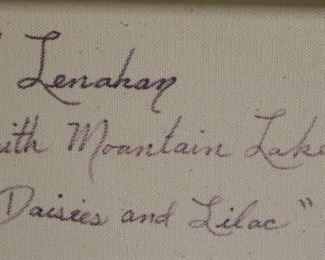 " Lenahan
ith Mountain Lake
Daisies and Lilac"